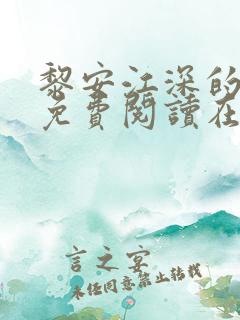 黎安江深的
免費閱讀在
言之宴
未任同意禁止转载